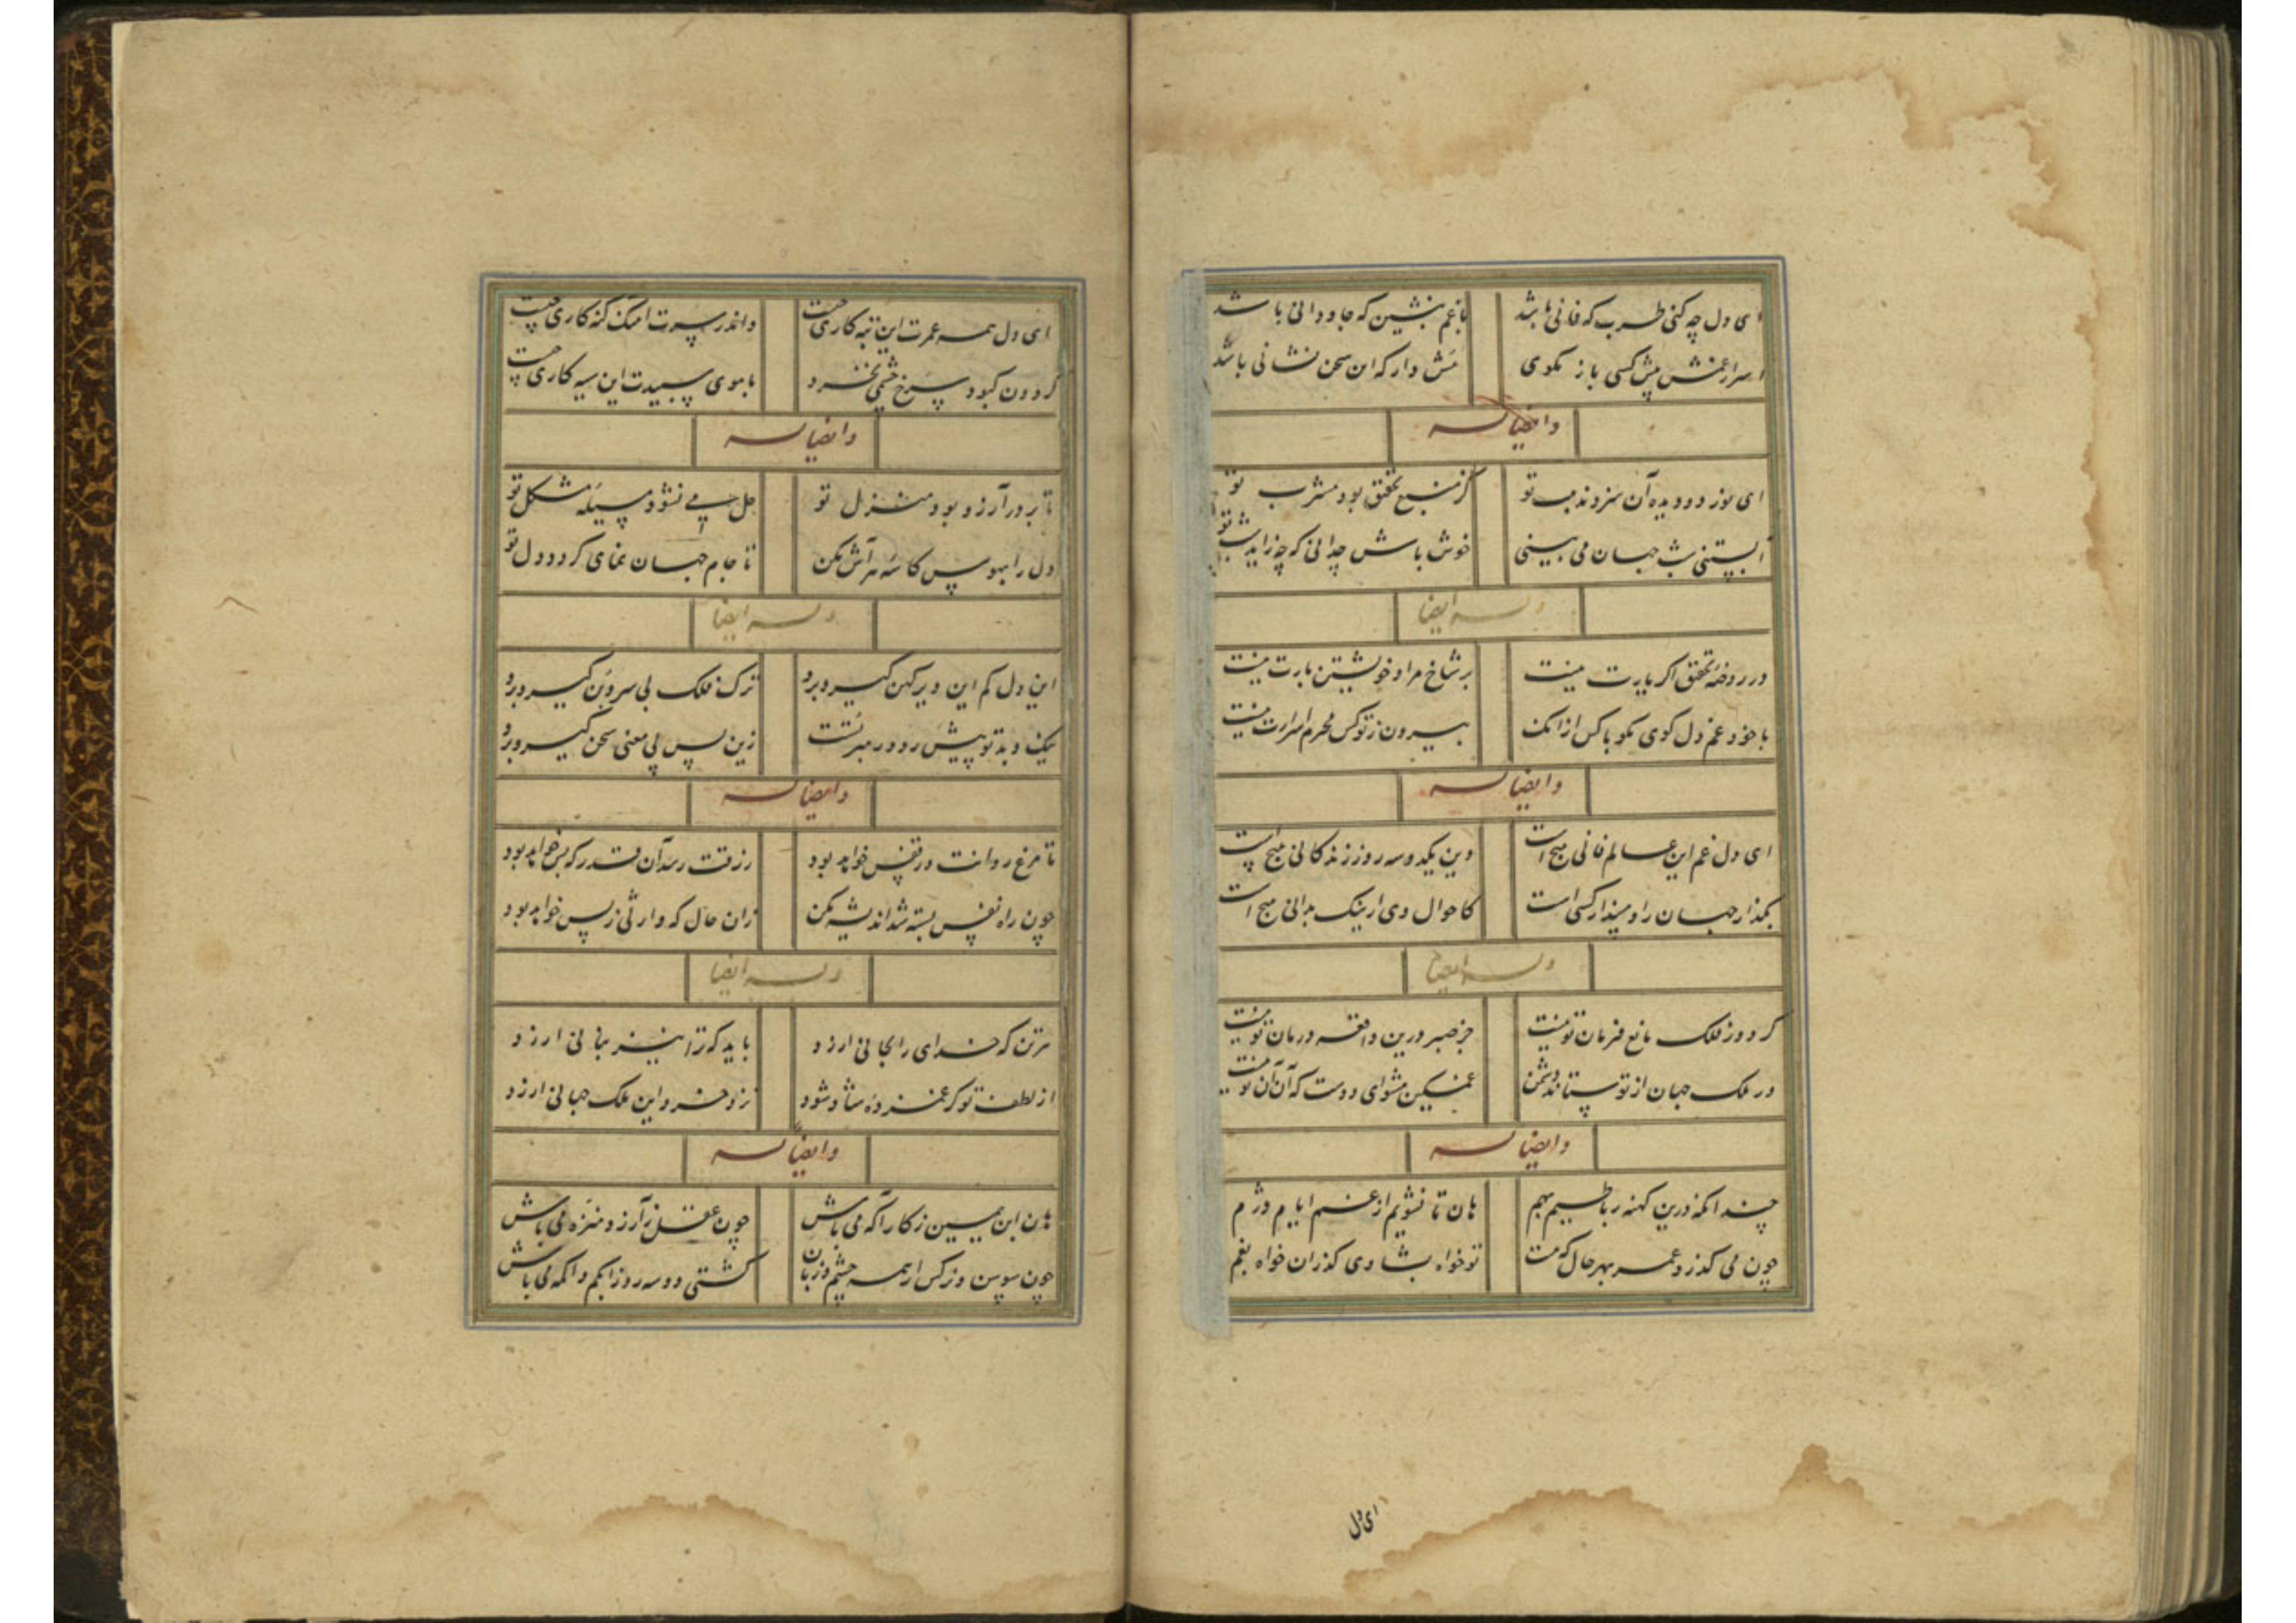 ای دل چه کنی طرب که فانی باشد با غم بنشین که جاودانی باشد
اسرار غمش پیش کسی باز مگوی هش دار که این سخن نشانی باشد
وایضا له
ای نور دو دیده آن سزد مذهب تو کز منبع تحقیق بود مشرب تو
آبستنی شب جهان می بینی خوش باش چه دانی که چه زاید شب تو
وله ایضا
در روضه تحقیق اگر یارت نیست بر شاخ مراد خویشتن بارت نیست
با خود غم دل گوی مگو با کس از آنک بیرون ز تو کس محرم اسرارت نیست
وایضا له
ای دل غم این عالم فانی هیچ است وین یکدو سه روز زندگانی هیچ است
بگذار جهان را و مپندار کسی است کاحوال وی ار نیک بدانی هیچ است
وله ایضا
گر دور فلک مانع فرمان تو نیست جز صبر درین واقعه درمان تو نیست
ور ملک جهان از تو ستاند دشمن غمگین مشو ای دوست که آن آن تو نیست
وایضا له
چندانکه درین کهنه رباطیم بهم هان تا نشویم از غم ایام دژم
چون می گذرد عمر بهر حال که هست تو خواه بشادی گذران خواه بغم
ای دل
ای دل همه عمرت این تبه کاری چیست واندر سرت آهنگ گنه کاری چیست
گردون کبود سرخ چشمی نخرد با موی سپیدت این سیه کاری چیست
وایضا له
تا بر در آرزو بود منزل تو حل می نشود مسیله مشکل تو
دل را بهوس کاسه هر آش مکن تا جام جهان نمای گردد دل تو
وله ایضا
این دل کم این دیر کهن گیر و برو ترک فلک بی سر و بن گیر و برو
نیک و بد تو پیش رو در زین پس پی معنی سخن گیر و برو
وایضا له
تا مرغ روانت در قفس خواهد بود رزقت رسد آن قدر که بس خواهد بود
چون راه نفس بسته شد اندیشه مکن زان حال که وارثی ز پس خواهد بود
وله ایضا
هر تن که خدای را بجانی ارزد باید که ترا نیز بنانی ارزد
از لطف تو گر غمزده شاد شود نزد خرد این ملک جهانی ارزد
وایضا له
هان ابن یمین ز کار آگه می باش چون عقل ز آرزو منزه می باش
چون سوسن و نرگس ار همه چشم و زبان گشتی دو سه روز ابکم و اکمه می باش